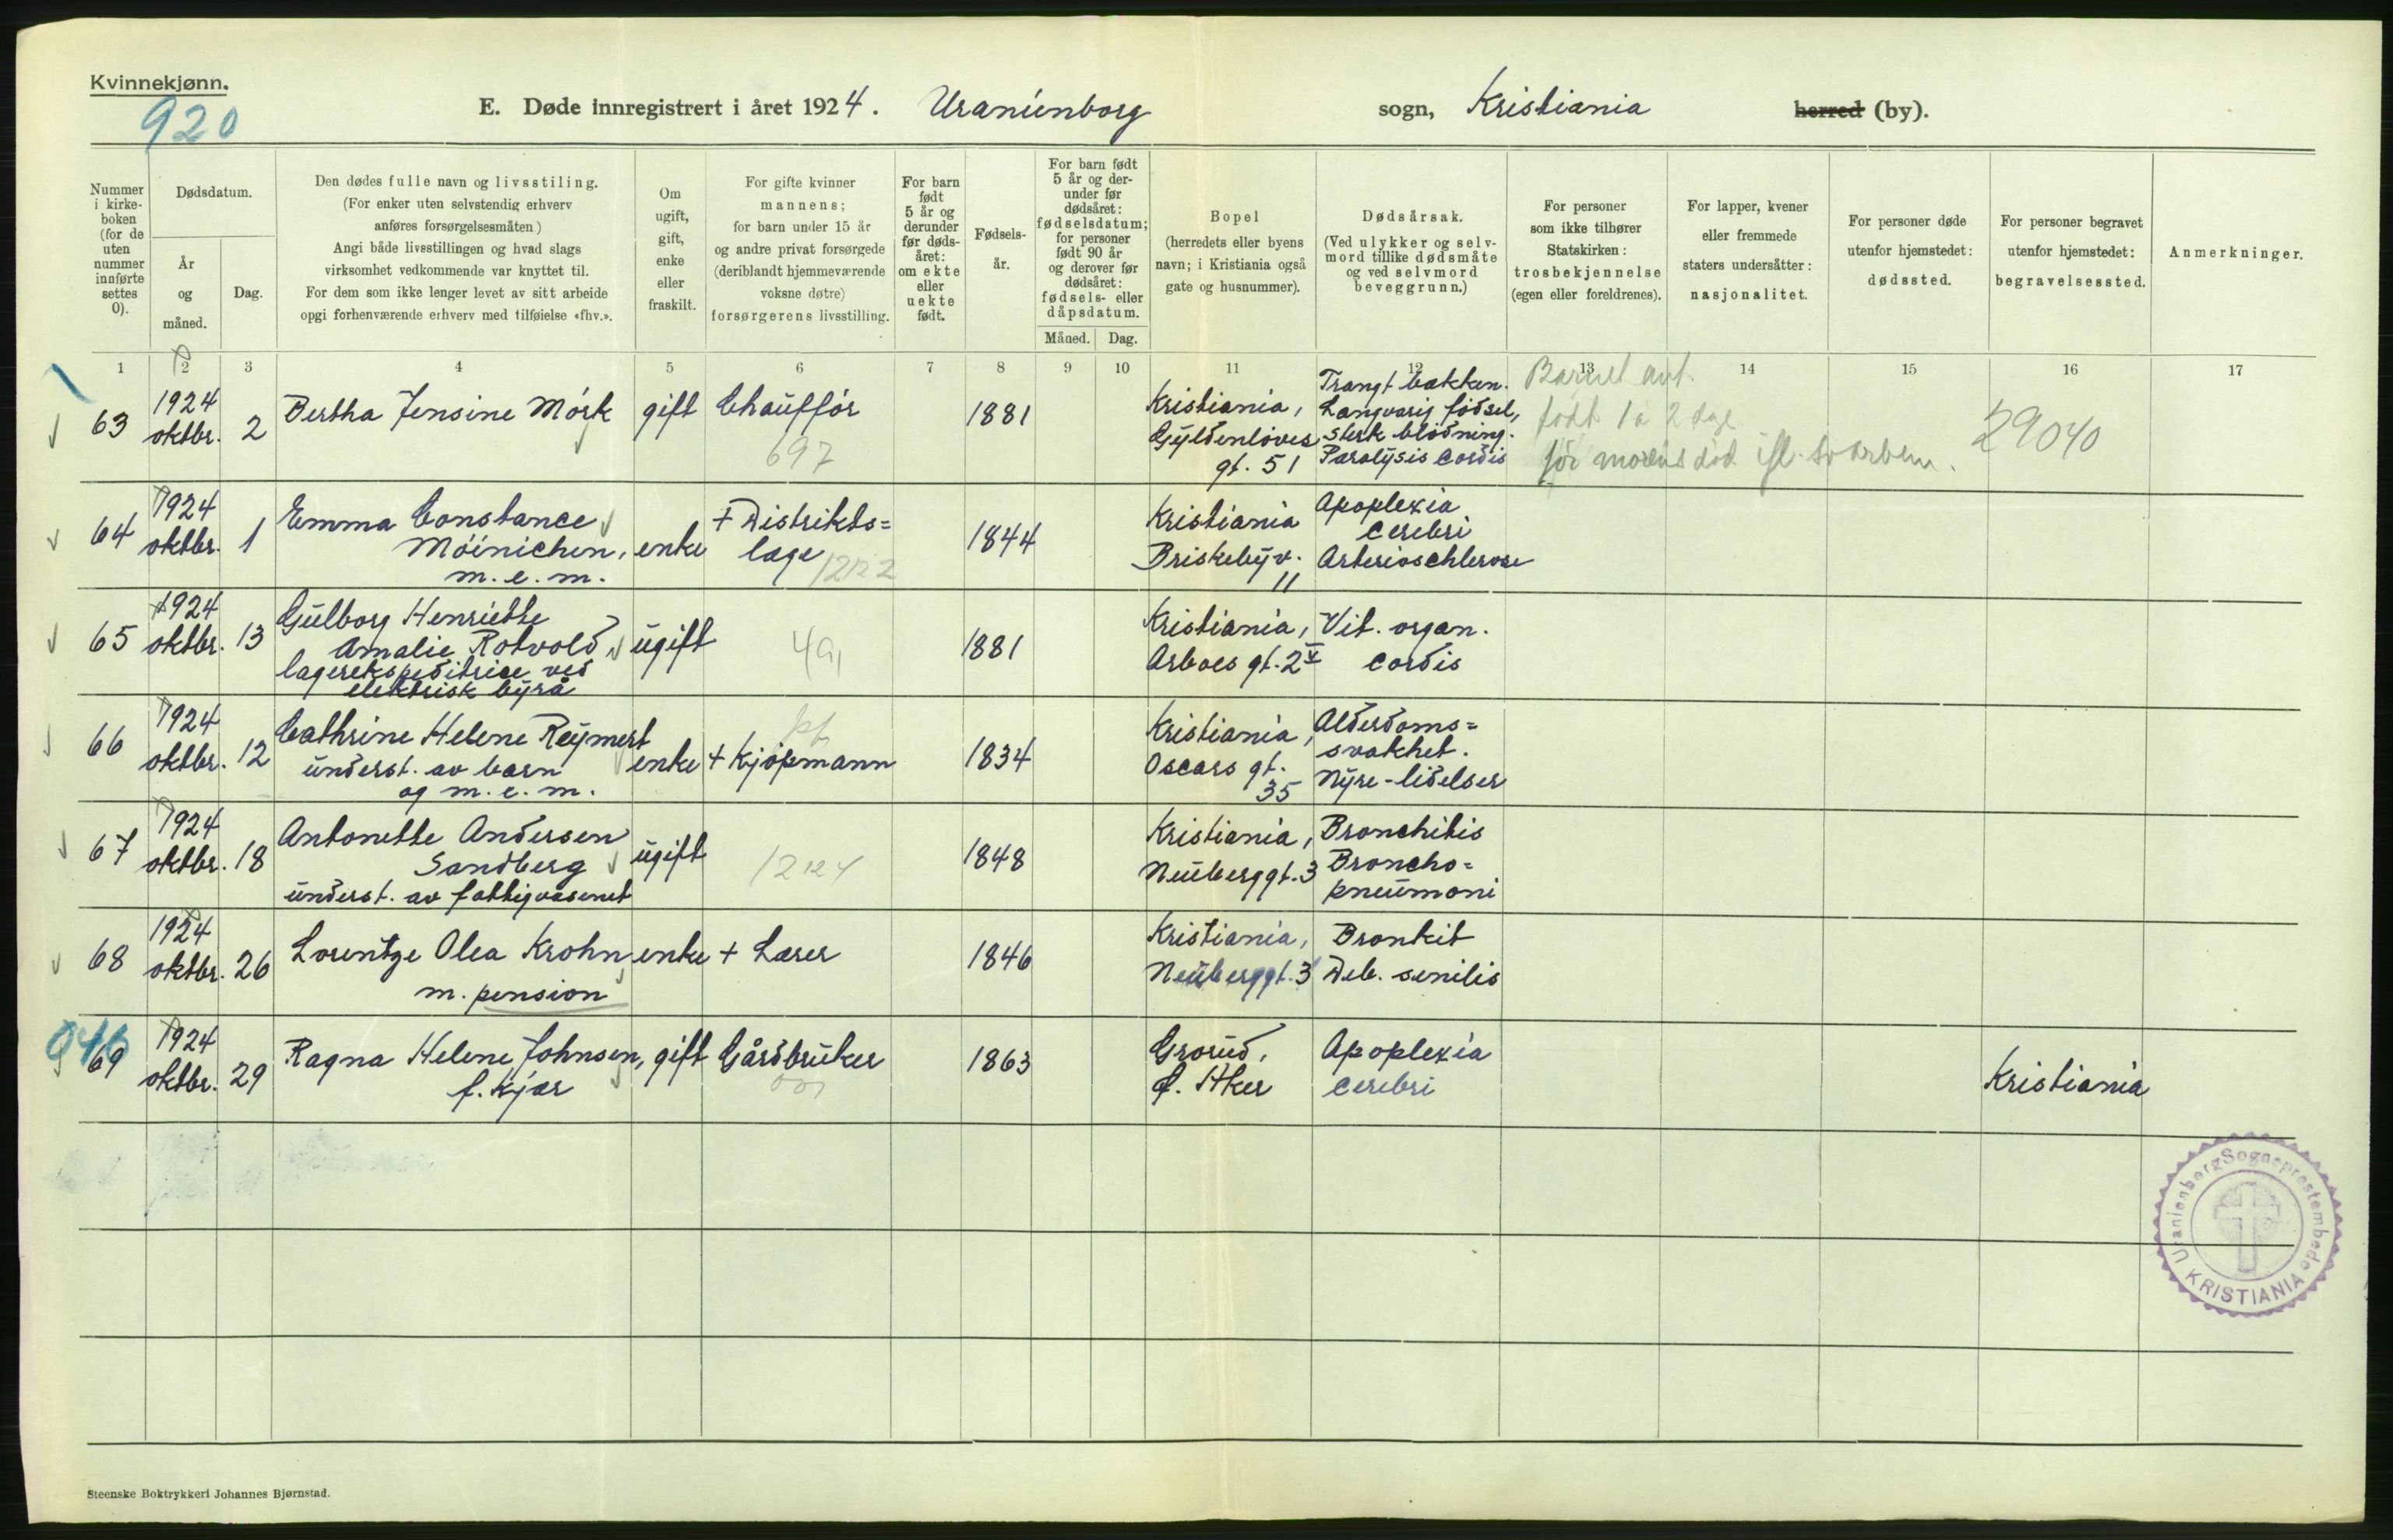 Kvinnekjønn.
920
E. Døde innregistrert i året 1924. Uranienborg sogn, Kristiania herred (by).
Nummer i kirkeboken (for de uten nummer innførte settes 0).
Dødsdatum.
År og måned.
Dag.
Den dødes fulle navn og livsstiling.
(For enker uten selvstendig erhverv
anføres forsørgelsesmåten)
Angi både livsstillingen og hvad slags
virksomhet vedkommende var knyttet til.
For dem som ikke lenger levet av sitt arbeide
opgi forhenværende erhverv med tilføielse «fhv.».
Om
ugift,
gift,
enke
eller
fraskilt.
For gifte kvinner
mannens;
for barn under 15 år
og andre privat forsørgede
(deriblandt hjemmeværende
voksne døtre)
forsørgerens livsstilling.
For barn
født
5 år og
derunder
før døds-
året:
om ekte
eller
uekte
født.
Fødsels-
år.
For barn født
5 år og der-
under før
dødsåret:
fødselsdatum;
for personer
født 90 år
og derover før
dødsåret:
fødsels- eller
dåpsdatum.
Måned. Dag.
Bopel
(herredets eller byens
navn; i Kristiania også
gate og husnummer).
Dødsårsak.
(Ved ulykker og selv-
mord tillike dødsmåte
og ved selvmord
beveggrunn.)
For personer
som ikke tilhører
Statskirken:
trosbekjennelse
(egen eller foreldrenes).
For lapper, kvener
eller fremmede
staters undersåtter:
nasjonalitet.
For personer døde
utenfor hjemstedet:
dødssted.
For personer begravet
utenfor hjemstedet:
begravelsessted.
Anmerkninger.
1 2 3 4 5 6 7 8 9 10 11 12 13 14 15 16 17
63
1924
oktbr. 2
Bertha Jensine Mørk
gift
Chauffør
697
1881
Kristiania,
Gyldenløves
gt. 51
Trangt bækken.
Langvarig fødsel,
sterk blødning.
Paralysis cordis
Barnet
født 1 à 2 dage
før morens død
29040
64
1924
oktbr. 1
Emma Constance
Møinichen,
m. e. m.
enke
+ Distrikts=
læge
1844
Kristiania
Briskebyv.
11
Apoplexia
cerebri
Arterioschlerose
65
1924
oktbr. 13
Gulborg Henriette
Amalie Rotvold
lagerekspeditrice ved
elektrisk byrå
ugift
1881
Kristiania,
Arboes gt. 2 V
Vit. organ.
cordis
66
1924
oktbr. 12
Cathrine Helene Reymert
underst. av barn
og m. e. m.
enke
+ Kjøpmann
1834
Kristiania,
Oscars gt.
35
Alderdoms=
svakhet.
Nyre-lidelser
67
1924
oktbr. 18
Antonette Andersen
Sandberg
underst. av fattigvæsenet
ugift
1848
Kristiania,
Neuberggt. 3
Bronchitis
Broncho=
pneumoni
68
1924
oktbr. 26
Lorentze Olea Krohn
m. pension
enke
+ Lærer
1846
Kristiania,
Neuberggt. 3
Bronkit
Deb. senilis
946
69
1924
oktbr. 29
Ragna Helene Johnsen,
f. Kjær
gift
Gårdbruker
1863
Grorud,
Ø. Aker
Apoplexia
cerebri
Kristiania
Uranienborg Sogneprestembede
KRISTIANIA
Steenske Boktrykkeri Johannes Bjørnstad.